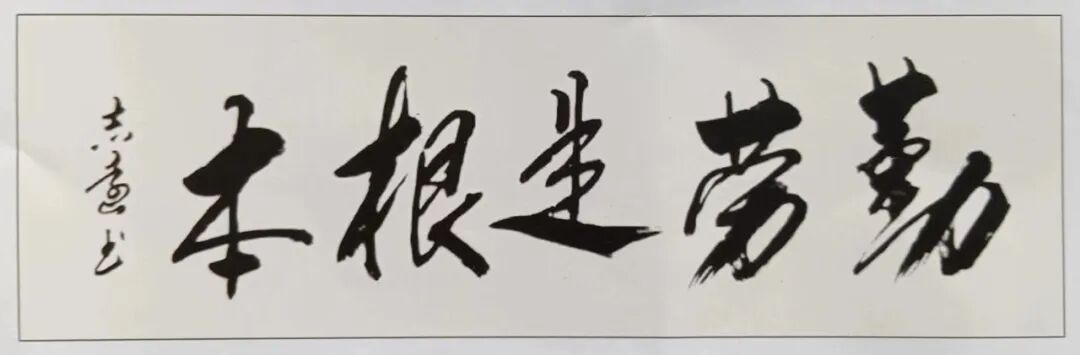 勤劳是根本
志远书